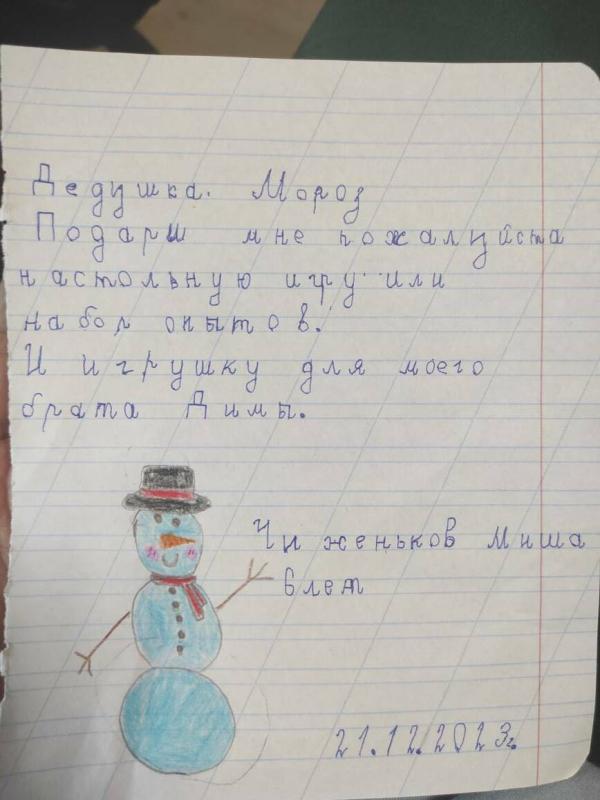 Дедушка. Мороз
Подари мне пожалуйста
настольную игру или
набор опытов.
И игрушку для моего
брата Димы.
Чиженьков Миша
6 лет
21.12.2023г.